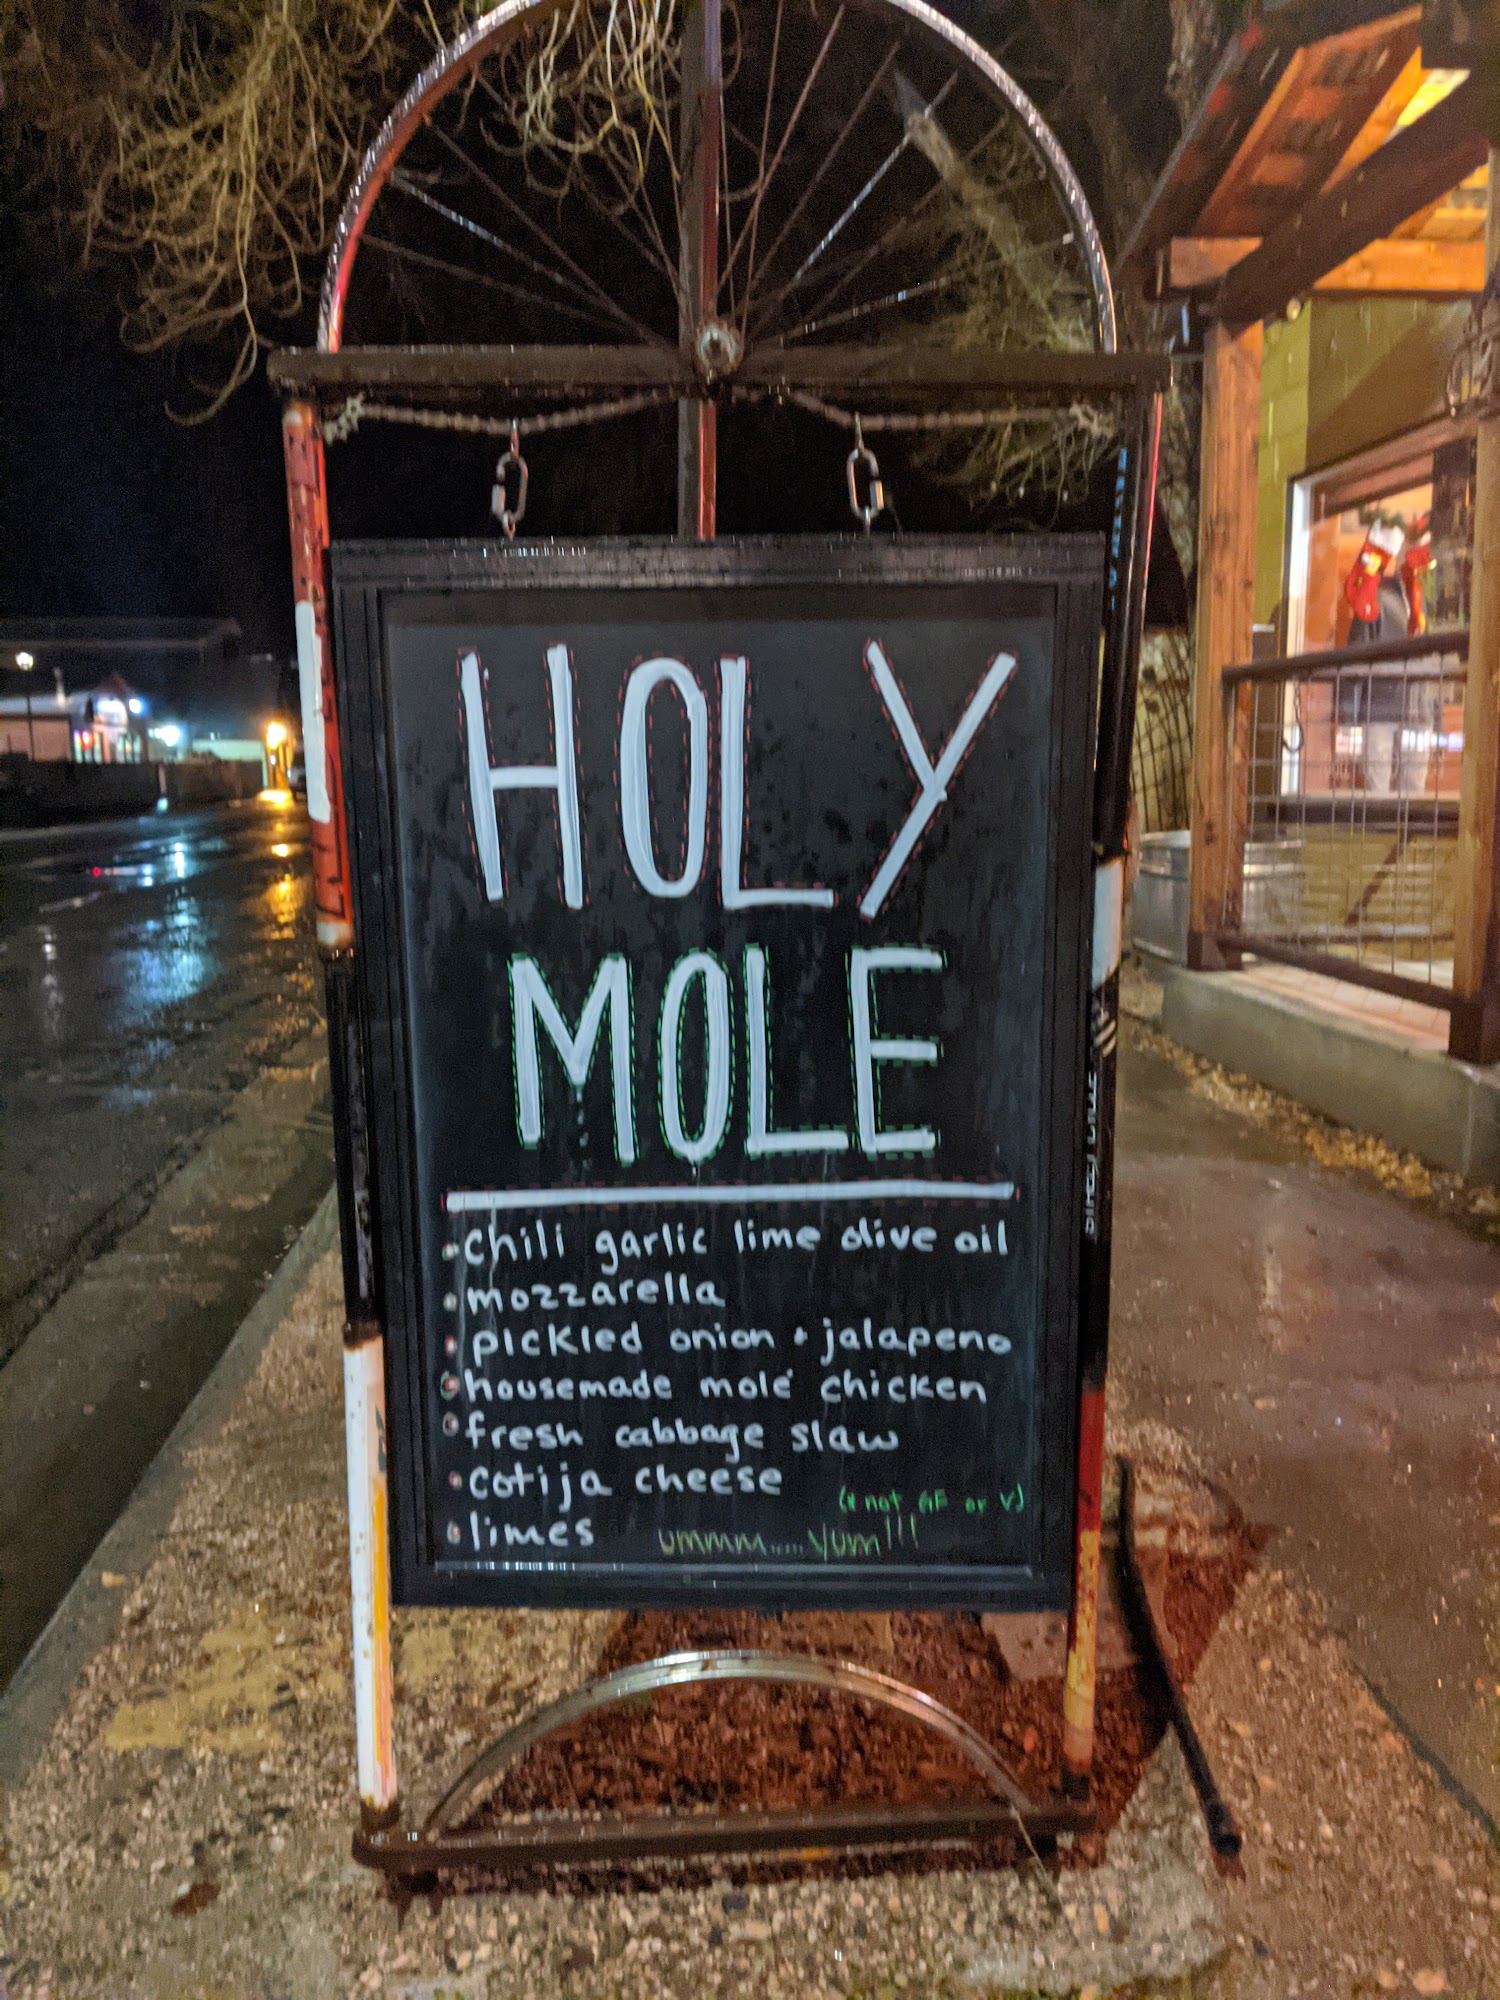 HOLY
MOLE
• chili garlic lime olive oil
• mozzarella
• pickled onion + jalapeno
• housemade molé chicken
• fresh cabbage slaw
• cotija cheese
(* not GF or V)
• limes ummm.....yum!!!